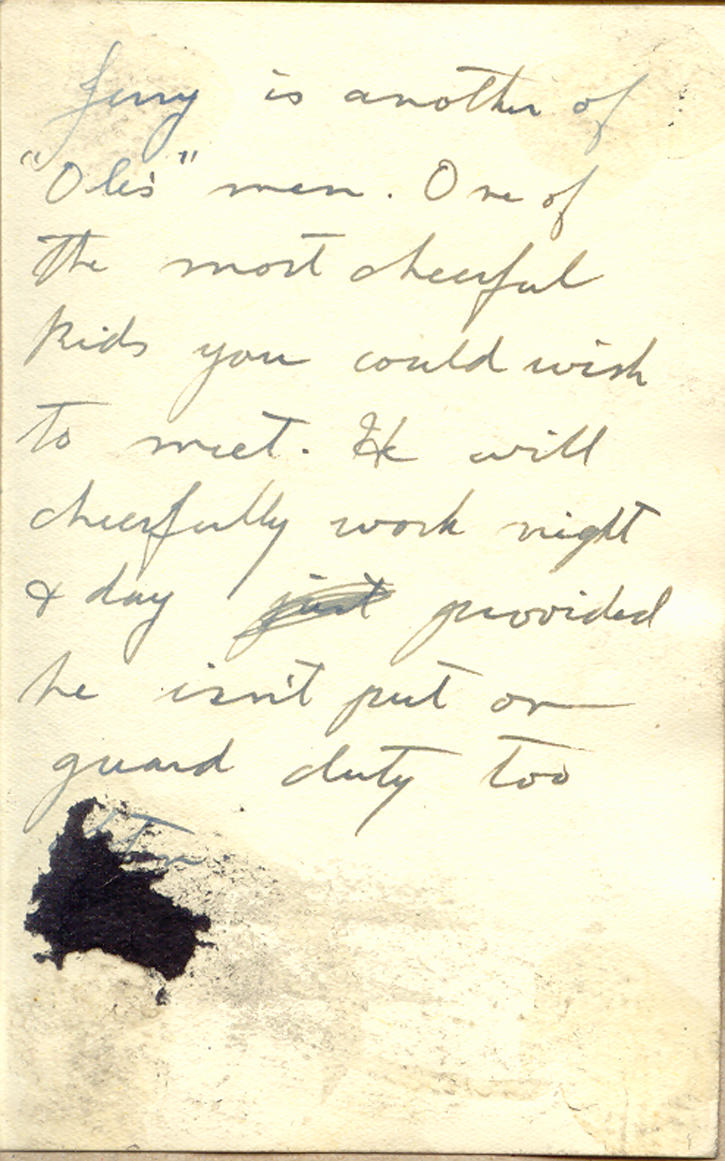 Jerry is another of
"Ole's" men. One of
the most cheerful
kids you could wish
to meet. He will
cheerfully work night
& day just provided
he isn't put on
guard duty too